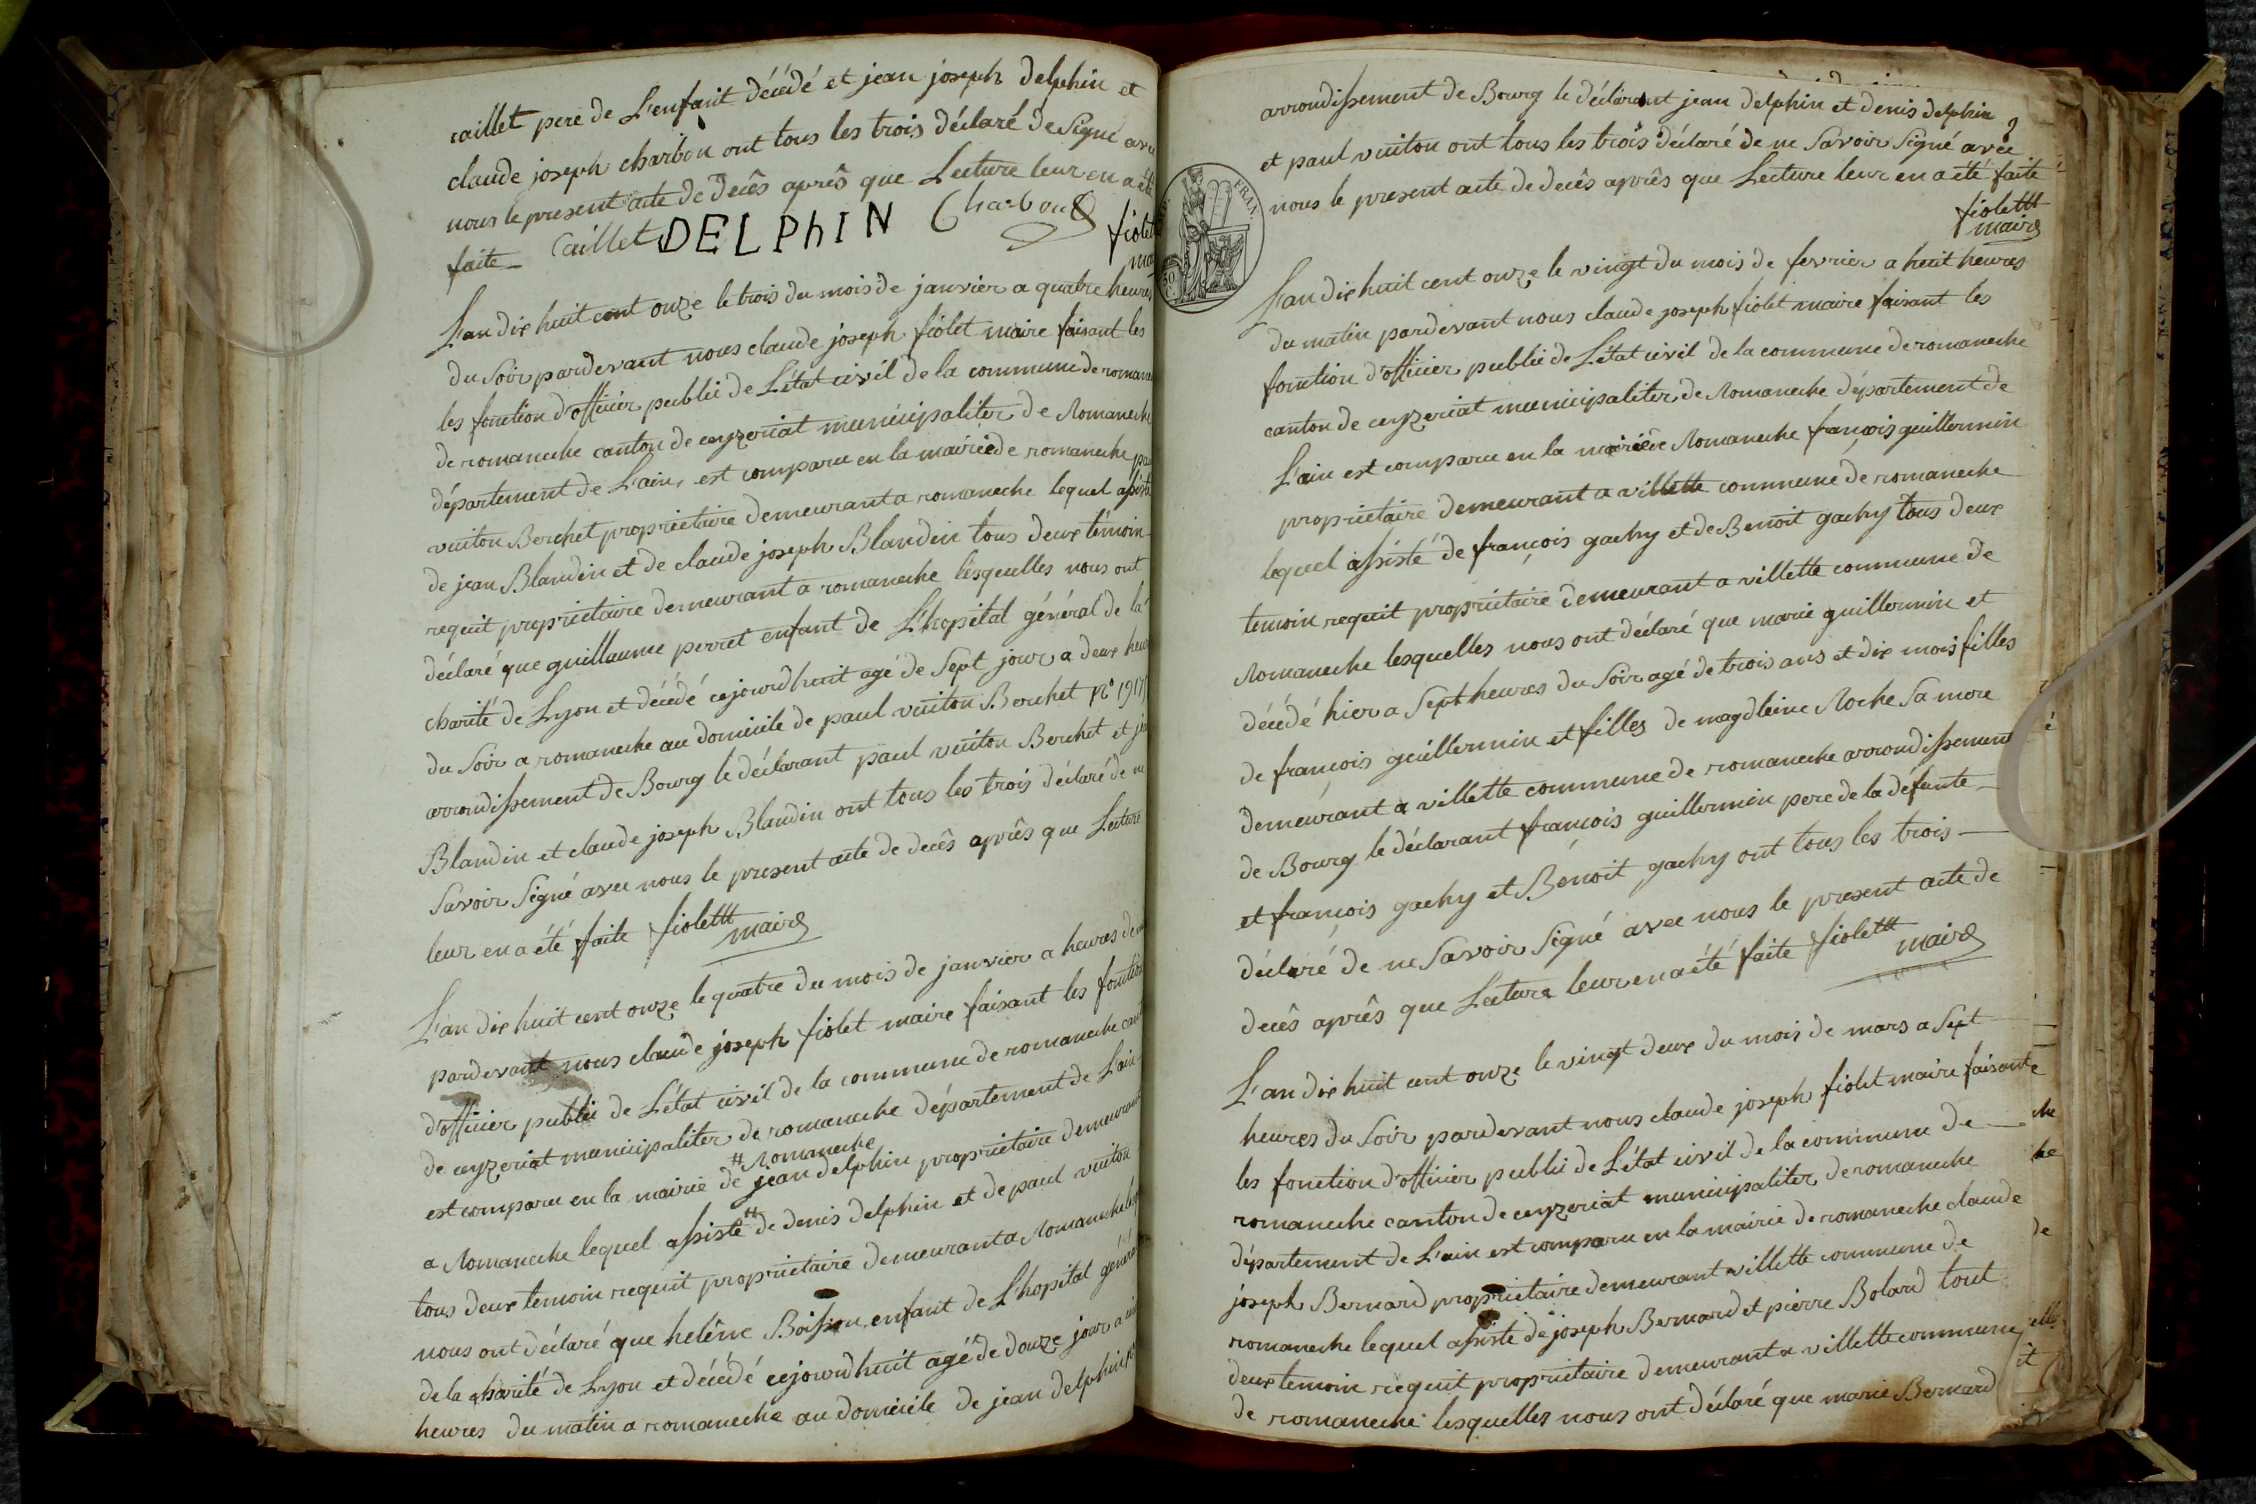 caillet pere de L'enfant décédé et jean joseph delphin et
claude joseph charbon ont tous les trois déclaré de Signé avec
nous le present acte de decês aprês que Lecture leur en a été
faite Caillet DELPhIN Charbon fiolet
L'an dix huit cent onze le trois du mois de janvier a quatre heures
du Soir pardevant nous claude joseph fiolet maire faisant les
les fonction d'officier public de L'état civil de la commune de romane
de romaneche canton de ceyzeriat municipaliter de Romaneche
département de L'ain, est comparu en la mairie de romaneche pa
vuiton Berchet proprietaire demeurant a romaneche lequel assisté
de jean Blandin et de claude joseph Blandin tous deux témoin
requit proprietaire demeurant a romaneche lesquelles nous ont
déclaré que guillaume perret enfant de L'hopital général de la
charité de Lyon et décédé cejourdhuit agé de Sept jour a deux heur
du Soir a romaneche au domicile de paul vuiton Berchet N° 1917
arrondissement de Bourg le déclarant paul vuiton Berchet et je
Blandin et claude joseph Blandin ont tous les trois déclaré de ne
Savoir Signé avec nous le present acte de decês aprês que Lecture
leur en a été faite fiolettt
maire
L'an dix huit cent onze le quatre du mois de janvier a heures de
pardevant nous claude joseph fiolet maire faisant les fonction
d'officier public de L'état civil de la commune de romaneche cant
de ceyzeriat municipaliter de romaneche département de L'ain
# Romaneche
est comparu en la mairie de jean delphin proprietaire demeurant
a Romaneche lequel assisté de denis delphin et de paul vuiton
tous deux temoin requit proprietaire demeurant a Romaneche
nous ont déclaré que helêne Boisson enfant de L'hopital généra
de la charité de Lyon et décédé cejourdhuit agé de douze jour a
heures du matin a romaneche au domicile de jean delphin
arrondissement de Bourg le déclarant jean delphin et denis delphin
et paul vuiton ont tous les trois déclaré de ne Savoir Signé avec
nous le present acte de decês aprês que Lecture leur en a été faite
fiolettt
maire
FRAN.
L'an dix huit cent onze le vingt du mois de fevrier a huit heures
du matin pardevant nous claude joseph fiolet maire faisant les
fonction d'officier public de L'état civil de la commune de romaneche
canton de ceyzeriat municipaliter de Romaneche département de
L'ain est comparu en la mairie de Romaneche françois guillermin
proprietaire demeurant a villette commune de romaneche
lequel assisté de françois gachy et de Benoit gachy tous deux
temoin requit proprietaire demeurant a villette commune de
Romaneche lesquelles nous ont déclaré que marie guillermin et
décédé hier a Sept heures du Soir agé de trois ans et dix mois filles
de françois guillermin et filles de magdleine Roche Sa mere
demeurant a villette commune de romaneche arrondissement
de Bourg le déclarant françois guillermin pere de la défunte
et françois gachy et Benoit gachy ont tous les trois
déclaré de ne Savoir Signé avec nous le present acte de
decês aprês que Lecture leur en a été faite fiolettt
maire
L'an dix huit cent onze le vingt deux du mois de mars a Sept
heures du Soir pardevant nous claude joseph fiolet maire faisant
les fonction d'officier public de L'état civil de la commune de
romaneche canton de ceyzeriat municipaliter de romaneche
département de L'ain est comparu en la mairie de romaneche claude
joseph Bernard proprietaire demeurant villette commune de
romaneche lequel assisté de joseph Bernard et pierre Bolard tout
deux temoin requit proprietaire demeurant a villette commune
de romaneche lesquelles nous ont déclaré que marie Bernard